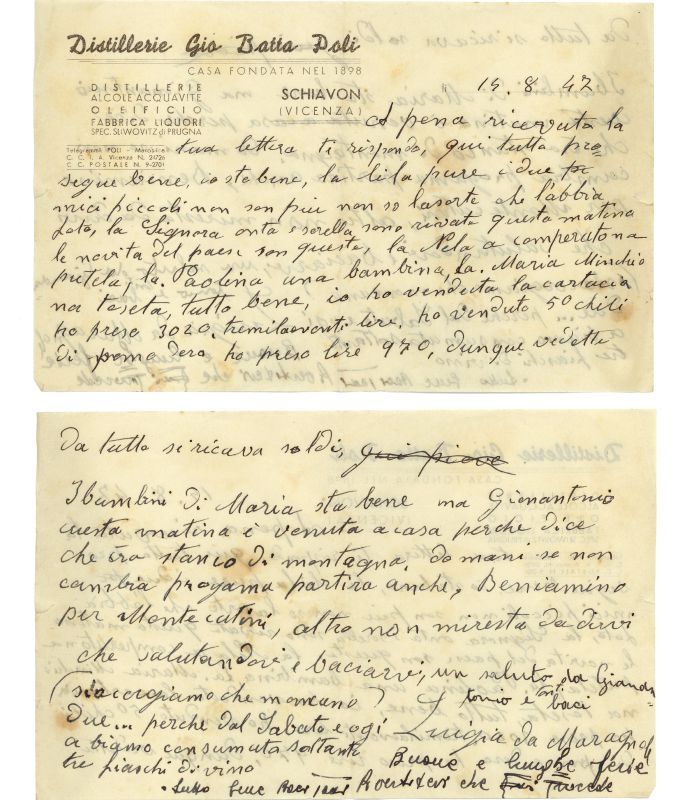 Distillerie Gio Batta Poli
CASA FONDATA NEL 1898
DISTILLERIE
ALCOLE ACQUAVITE
OLEIFICIO
FABBRICA LIQUORI
SPEC. SLIWOVITZ di PRUGNA
SCHIAVON
(VICENZA)
Telegrammi POLI - Marostica
C. C. I. A. Vicenza N. 24726
C. C. POSTALE N. 9-2701
15. 8. 47
Apena ricevuta la
tua lettera ti rispondo, qui tutto pro=
segue bene, io sto bene, la lila pure i due
mici piccoli non son piu non so la sorte che l'abbia
loto, la Signora onta e sorella sono rivate questa matina
le novita del paese son queste, la Nela a comperato na
putela, la Paolina una bambina, la. Maria Minchio
na toseta, tutto bene, io ho venduta la cartacia
ho preso 3020, tremilaeventi lire, ho venduto 50 chili
di pomodero ho preso lire 970, dunque vedette
Da tutto si ricava soldi, qui piove
I bambini di Maria sta bene ma Gionantonio
questa matina è venuta a casa perche dice
che era stanco di montagna, domani se non
cambia progama partira anche, Beniamino
per Montecatini, altro non mi resta da dirvi
che salutandovi e baciarvi, un saluto da Gioan=
tonio e baci
(si acorgiamo che mancano)
due... perche dal Sabato e ogi
Luigia da Maragnol
a biamo consumata soltanti
tre fiaschi di vino
Buone e lunghe ferie
Tutto bene che procede